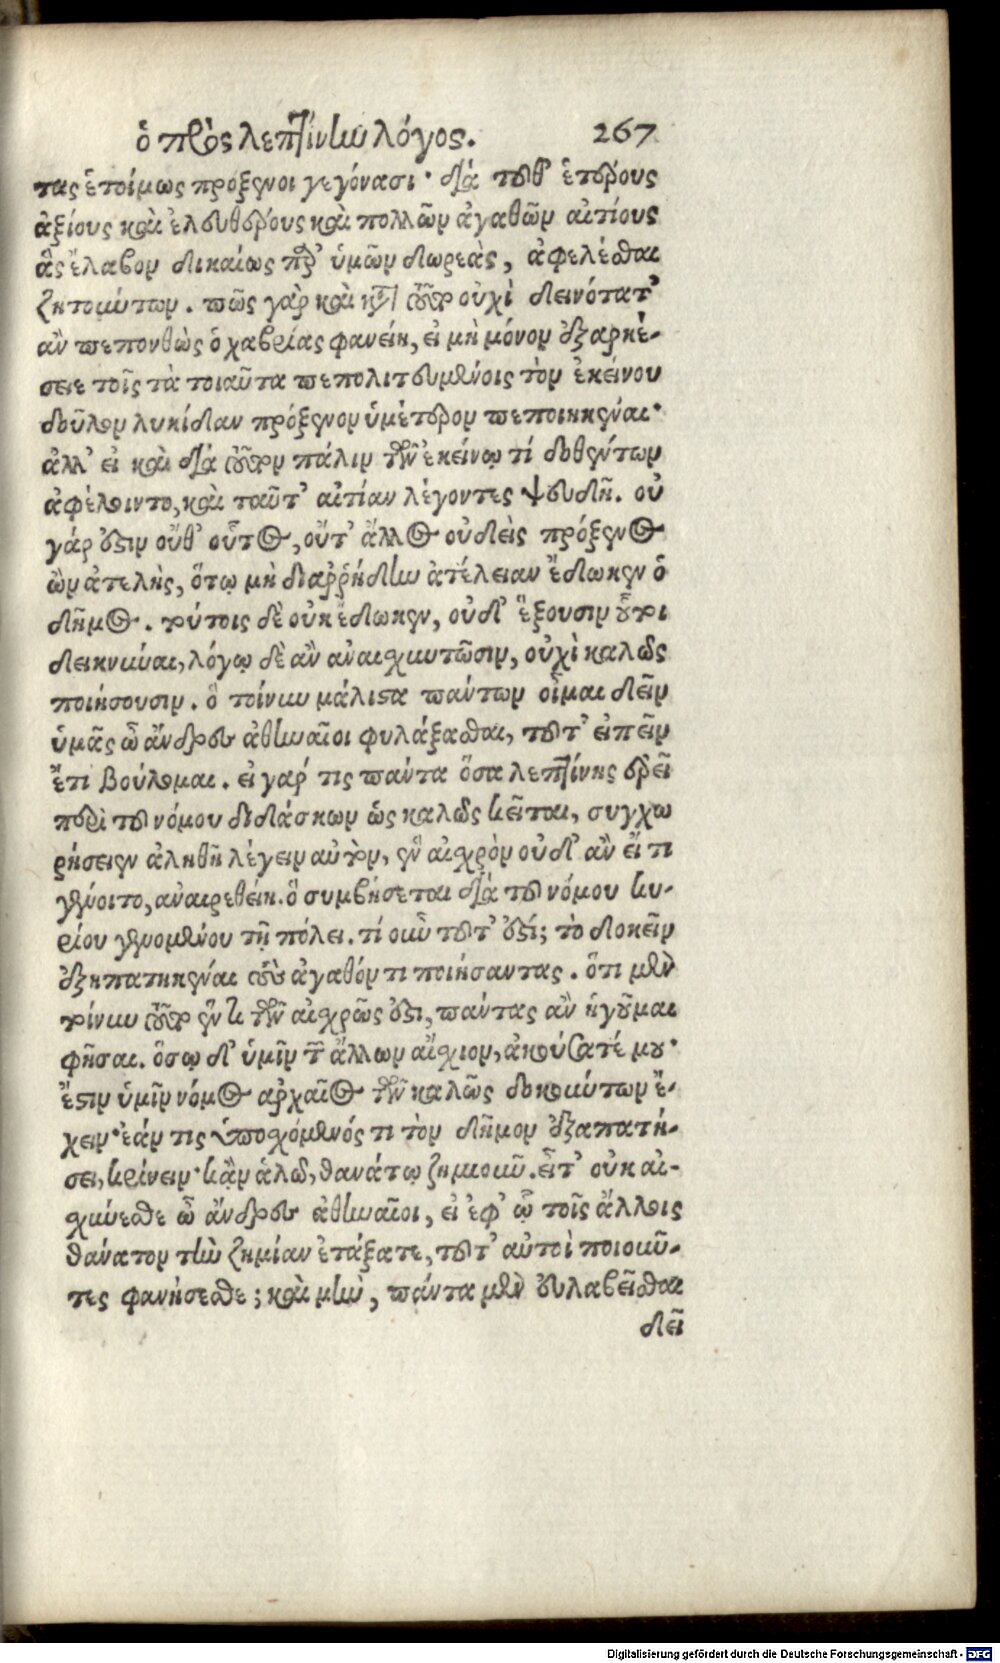 ὁ πρὸς λεπτίνην λόγος. 267
τας ἑτοίμως πρόξενοι γεγόνασι· διὰ τοῦθ' ἑτέρους
ἀξίους καὶ ἐλευθέρους καὶ πολλῶν ἀγαθῶν αἰτίους
ἃς ἔλαβον δικαίως παρ' ὑμῶν δωρεὰς, ἀφελέσθαι
ζητούντων. πῶς γὰρ καὶ κατὰ τοῦτο οὐχὶ δεινότατ'
ἂν πεπονθὼς ὁ χαβρίας φανείη, εἰ μὴ μόνον ἐξαρκέ-
σειε τοῖς τὰ τοιαῦτα πεπολιτευμένοις τὸν ἐκείνου
δοῦλον λυκίδαν πρόξενον ὑμέτερον πεποιηκέναι·
ἀλλ' εἰ καὶ διὰ τοῦτον πάλιν τῶν ἐκείνῳ τί δοθέντων
ἀφέλοιντο, καὶ ταῦτ' αἰτίαν λέγοντες ψευδῆ. οὐ
γάρ ἐστιν οὔθ' οὗτος, οὔτ' ἄλλος οὐδεὶς πρόξενος
ὢν ἀτελὴς, ὅτῳ μὴ διαῤῥήδην ἀτέλειαν ἔδωκεν ὁ
δῆμος. τούτοις δὲ οὐκ ἔδωκεν, οὐδ' ἕξουσιν οὗτοι
δεικνύναι, λόγῳ δὲ ἂν ἀναισχυντῶσιν, οὐχὶ καλῶς
ποιήσουσιν. ὃ τοίνυν μάλιστα πάντων οἶμαι δεῖν
ὑμᾶς ὦ ἄνδρες ἀθηναῖοι φυλάξασθαι, τοῦτ' εἰπεῖν
ἔτι βούλομαι. εἰ γάρ τις πάντα ὅσα λεπτίνης ἐρεῖ
περὶ τοῦ νόμου διδάσκων ὡς καλῶς κεῖται, συγχω
ρήσειεν ἀληθῆ λέγειν αὐτὸν, ἓν αἰσχρὸν οὐδ' ἂν εἴ τι
γένοιτο, ἀναιρεθείη. ὃ συμβήσεται διὰ τοῦ νόμου κυ-
ρίου γενομένου τῇ πόλει. τί οὖν τοῦτ' ἐστί; τὸ δοκεῖν
ἐξηπατηκέναι τοὺς ἀγαθόν τι ποιήσαντας. ὅτι μὲν
τοίνυν τοῦτο ἕν τι τῶν αἰσχρῶς ἐστι, πάντας ἂν ἡγοῦμαι
φῆσαι. ὅσῳ δ' ὑμῖν τῶν ἄλλων αἴσχιον, ἀκούσατέ μου·
ἔστιν ὑμῖν νόμος ἀρχαῖος τῶν καλῶς δοκούντων ἔ-
χειν· ἐάν τις ὑποσχόμενός τι τὸν δῆμον ἐξαπατή-
σει, κρίνειν· κἂν ἁλῶ, θανάτῳ ζημιοῦν. εἶτ' οὐκ αἰ-
σχύνεσθε ὦ ἄνδρες ἀθηναῖοι, εἰ ἐφ' ᾧ τοῖς ἄλλοις
θάνατον τὴν ζημίαν ἐτάξατε, τοῦτ' αὐτοὶ ποιοῦν-
τες φανήσεσθε; καὶ μὴν, πάντα μὲν εὐλαβεῖσθαι
δεῖ
Digitalisierung gefördert durch die Deutsche Forschungsgemeinschaft - DFG